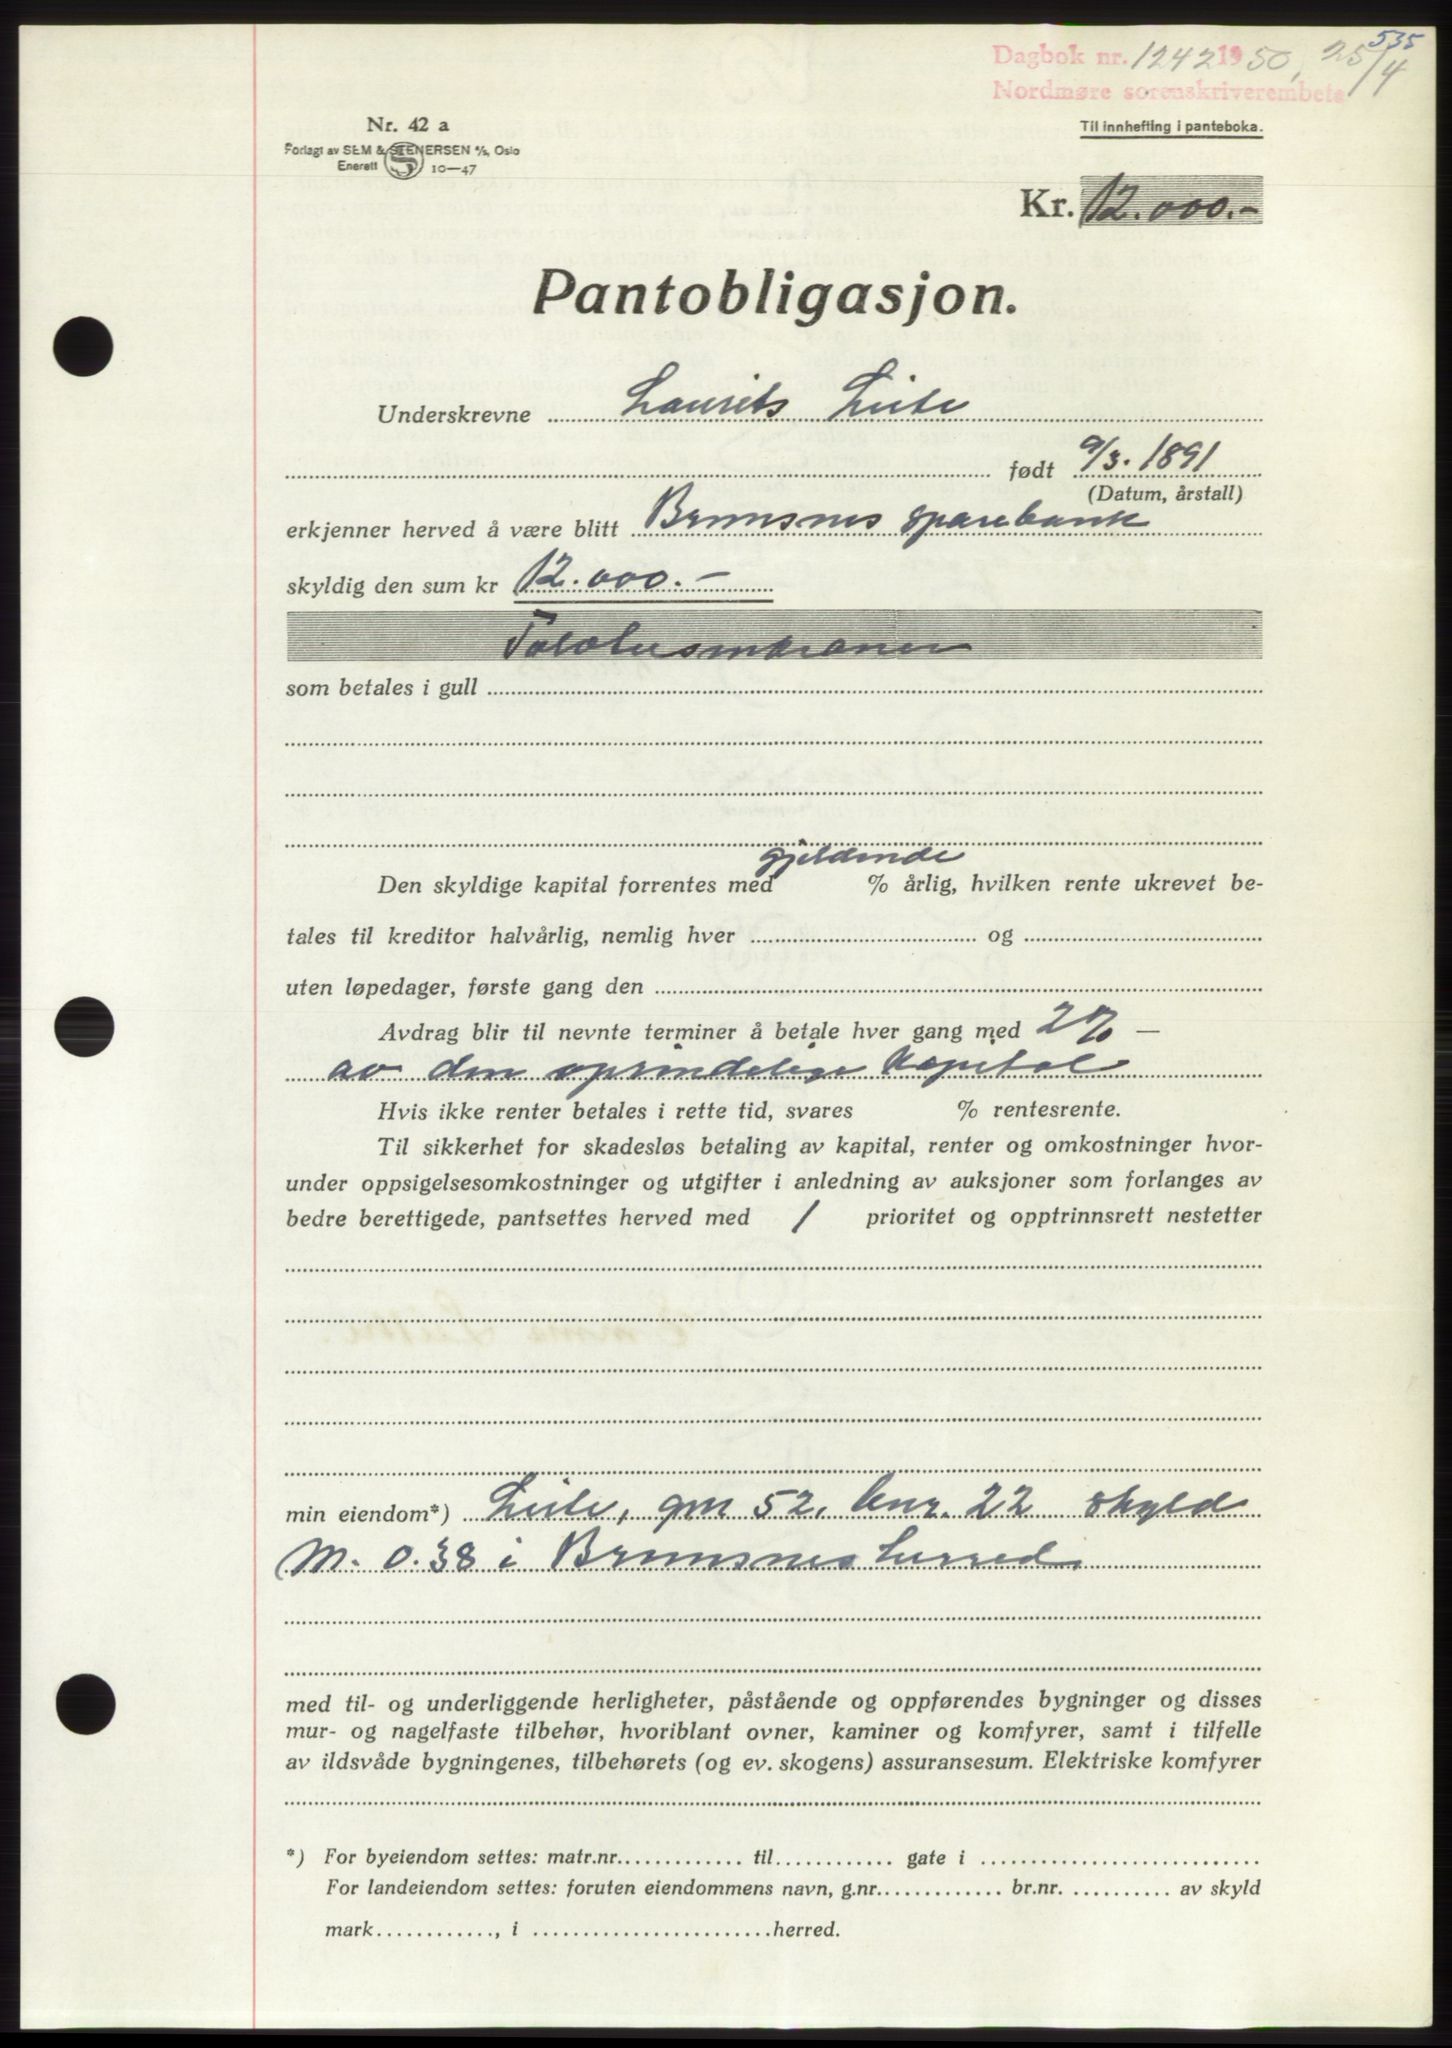 535
Dagbok nr. 1242 1950, 25/4
Nordmøre sorenskriverembete
Nr. 42 a
Til innhefting i panteboka.
Forlagt av SEM & STENERSEN A/S, Oslo
Enerett 10—47
Kr. 12.000.-
Pantobligasjon.
Underskrevne Laurits Leite
født 9/3. 1891
(Datum, årstall)
erkjenner herved å være blitt Bremsnes sparebank
skyldig den sum kr 12.000.-
Tolvtusenkroner
som betales i gull
gjeldende
Den skyldige kapital forrentes med % årlig, hvilken rente ukrevet be-
tales til kreditor halvårlig, nemlig hver og
uten løpedager, første gang den
Avdrag blir til nevnte terminer å betale hver gang med 2% —
av den oprindelige kapital
Hvis ikke renter betales i rette tid, svares % rentesrente.
Til sikkerhet for skadesløs betaling av kapital, renter og omkostninger hvor-
under oppsigelsesomkostninger og utgifter i anledning av auksjoner som forlanges av
bedre berettigede, pantsettes herved med 1 prioritet og opptrinnsrett nestetter
min eiendom*) Leite, gnr 52, bnr. 22 skyld
M. 0.38 i Bremsnes herred.
med til- og underliggende herligheter, påstående og oppførendes bygninger og disses
mur- og nagelfaste tilbehør, hvoriblant ovner, kaminer og komfyrer, samt i tilfelle
av ildsvåde bygningenes, tilbehørets (og ev. skogens) assuransesum. Elektriske komfyrer
*) For byeiendom settes: matr.nr. til gate i
For landeiendom settes: foruten eiendommens navn, g.nr. br.nr. av skyld
mark , i herred.